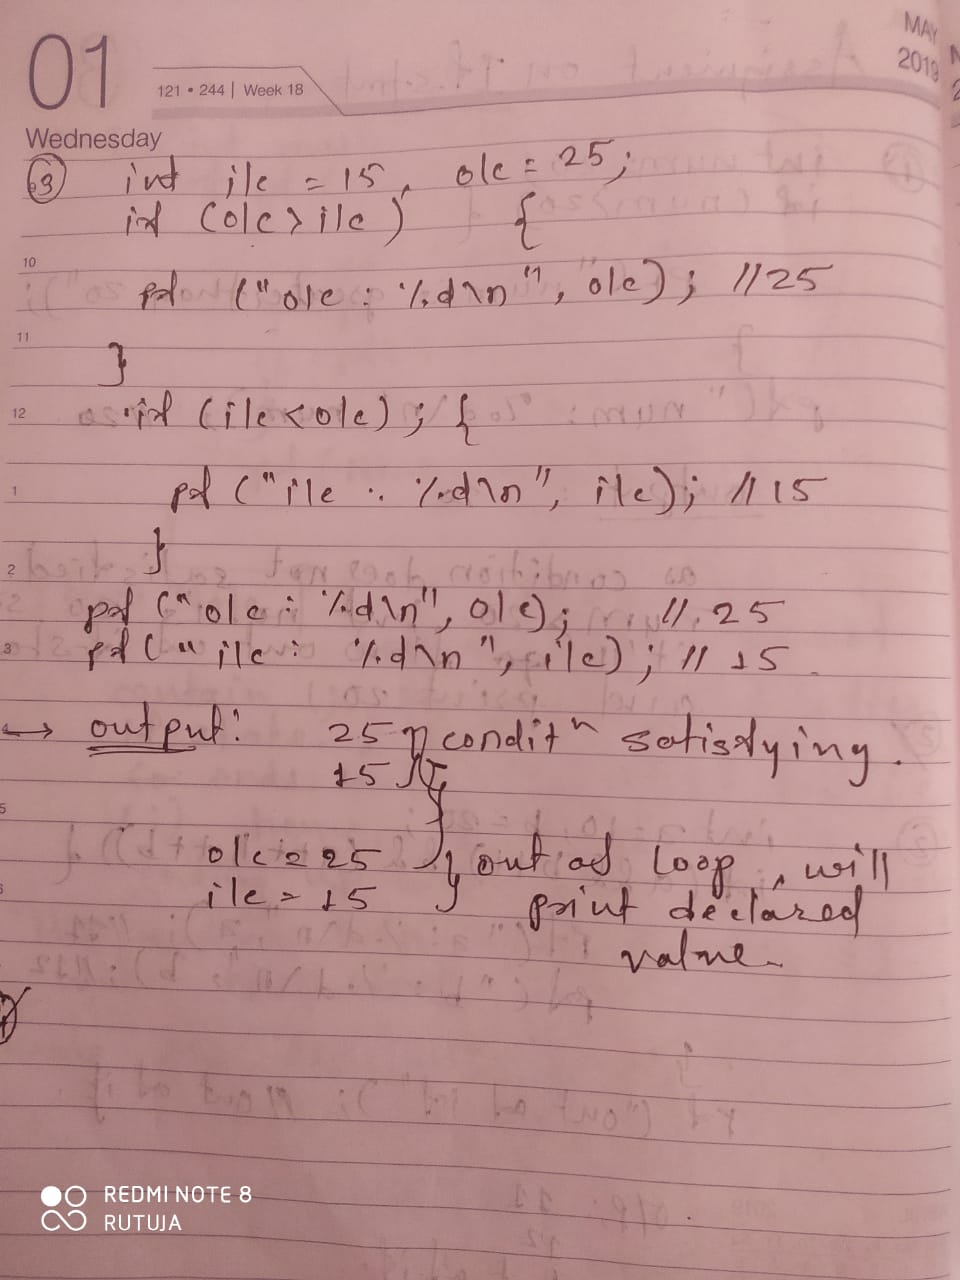 01
MAY
2019
121 • 244 | Week 18
Wednesday
3 int ile = 15, ole = 25;
if (ole > ile) {
10
pf ("ole : %d\n", ole); //25
11
}
12 if (ile < ole) ; {
1 pf ("ile : %d\n", ile); //15
}
2
pf ("ole : %d\n", ole); // 25
3 pf ("ile : %d\n", ile); // 15
→ output: 25 } conditn satisfying.
15
5
ole = 25 } out of loop, will
6 ile = 15 print declared
value.
REDMI NOTE 8
RUTUJA